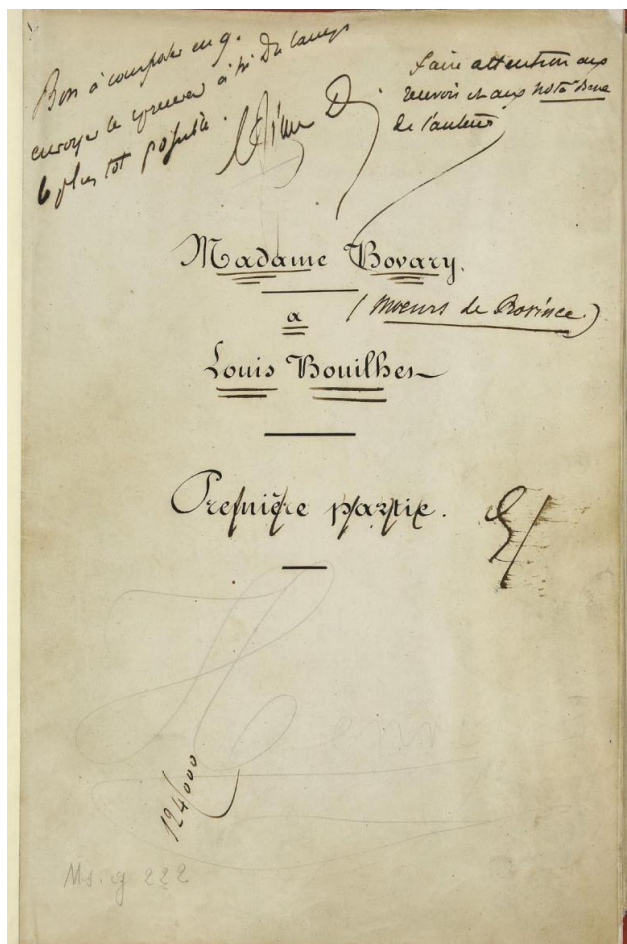 Bon à composer en 9.
envoyer le épreuves à Mr Du Camp
le plus tôt possible.
faire attention aux
renvois et aux nota Bene
de l'auteur
Madame Bovary.
(Moeurs de Province.)
a
Louis Bouilhet
Première partie.
124/000
Ms. g 222